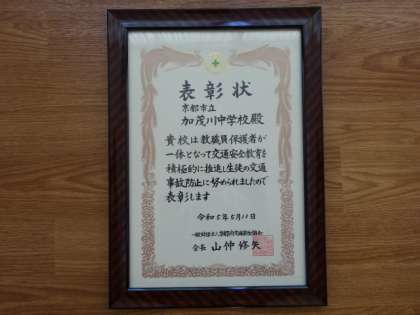 表彰状
京都市立
加茂川中学校殿
貴校は教職員保護者が
一体となって交通安全教育を
積極的に推進し生徒の交通
事故防止に努められましたので
表彰します
令和5年5月11日
会長 山仲修矢